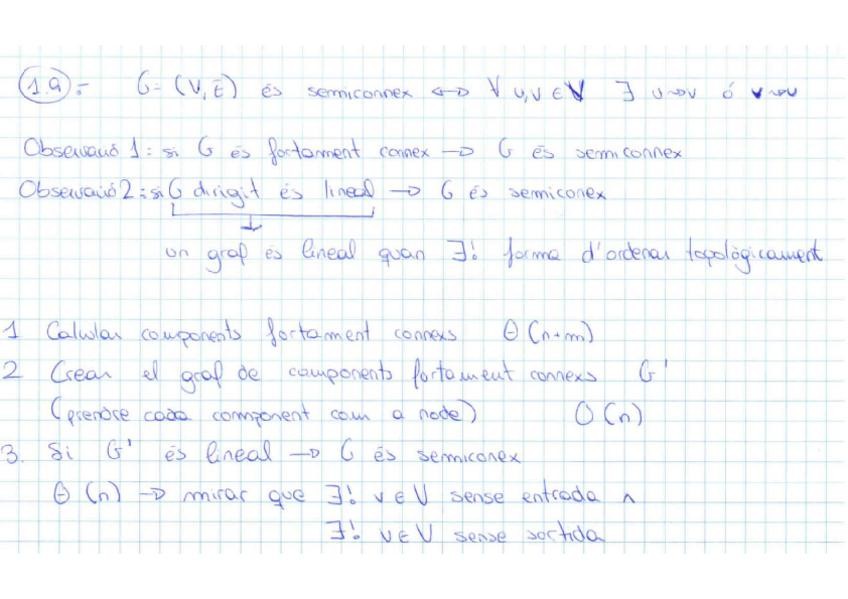 1.9 :- G = (V, E) és semiconnex ⟷ ∀ u,v ∈ V ∃ u⇝v ó v⇝u
Observació 1: si G és fortament connex → G és semiconnex
Observació 2: si G dirigit és lineal → G és semiconex
un graf és lineal quan ∃! forma d'ordenar topològicament
1 Calcular components fortament connexs Θ(n+m)
2 Crear el graf de components fortament connexs G'
(prendre cada component com a node) O(n)
3. Si G' és lineal → G és semiconex
Θ(n) → mirar que ∃! v ∈ V sense entrada ∧
∃! v ∈ V sense sortida